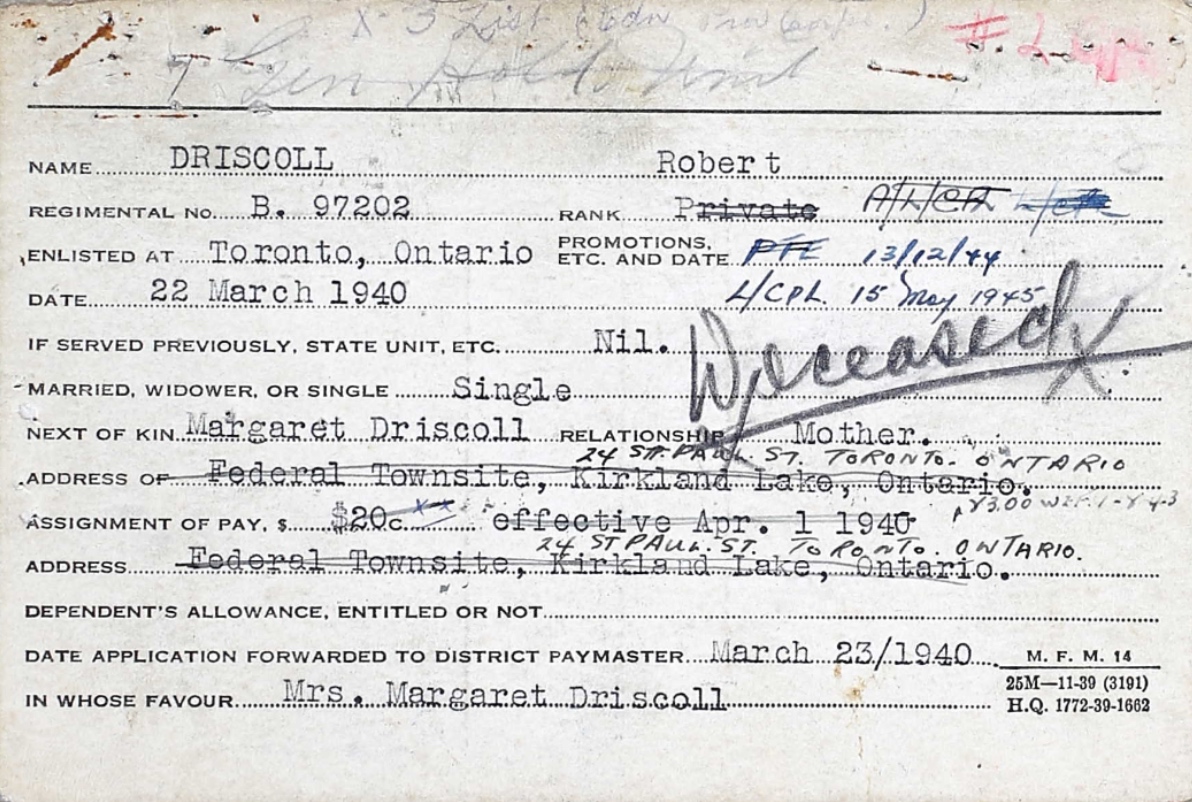 X-3 List (Cdn
Gen Hold Unit
# 2
NAME DRISCOLL Robert
REGIMENTAL No. B. 97202 RANK Private A/L/CPL L/CPL
ENLISTED AT Toronto, Ontario PROMOTIONS, ETC. AND DATE PTE 13/12/44
DATE 22 March 1940 L/CPL. 15 May 1945
IF SERVED PREVIOUSLY, STATE UNIT, ETC. Nil.
Deceased
MARRIED, WIDOWER, OR SINGLE Single
NEXT OF KIN Margaret Driscoll RELATIONSHIP Mother.
24 ST. PAUL. ST. TORONTO. ONTARIO
ADDRESS OF Federal Townsite, Kirkland Lake, Ontario.
ASSIGNMENT OF PAY, $ $20 effective Apr. 1 1940
24 ST PAUL. ST. TORONTO. ONTARIO.
ADDRESS Federal Townsite, Kirkland Lake, Ontario.
DEPENDENT'S ALLOWANCE, ENTITLED OR NOT
DATE APPLICATION FORWARDED TO DISTRICT PAYMASTER March 23/1940 M. F. M. 14
25M—11-39 (3191)
IN WHOSE FAVOUR Mrs. Margaret Driscoll H.Q. 1772-39-1662